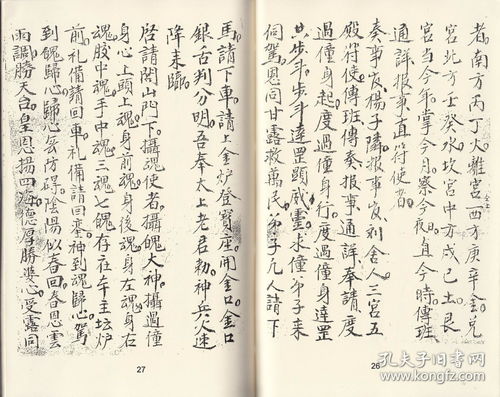 者南方丙丁火離宮西方庚辛金兌
宮北方壬癸水坎宮中方戊己土艮
宮當今年掌今月察今夜且今時傳班
通詳报事直符使者
奏事官楊子隣报事官刘舍人三宮五
殿符使傳班傳奏报事通詳奉請度
過僮身起度過僮身行度過僮身達罡
共步斗步斗達罡顕威靈求僮弟子来
伺駕恩同甘露救萬民弟子几人請下
26
馬請下車請上金炉登寳座開金口金口
銀舌判分明吾奉太上老君勅神兵火速
降来臨
啓請閭山門下攝魂使者攝魄大神攝過僮
身心上頭上魂身前魂身後魂身左魂身右
魂胶中魂手中魂三魂七魄存在午主坛炉
前礼備請回車礼備請回壇神到魂歸心駕
到魄歸心歸心去仿碍陰陽似春回春恩雲
雨調勝天台皇恩揚四海德厚勝
心受露同
27
孔夫子旧书网
kongfz.com